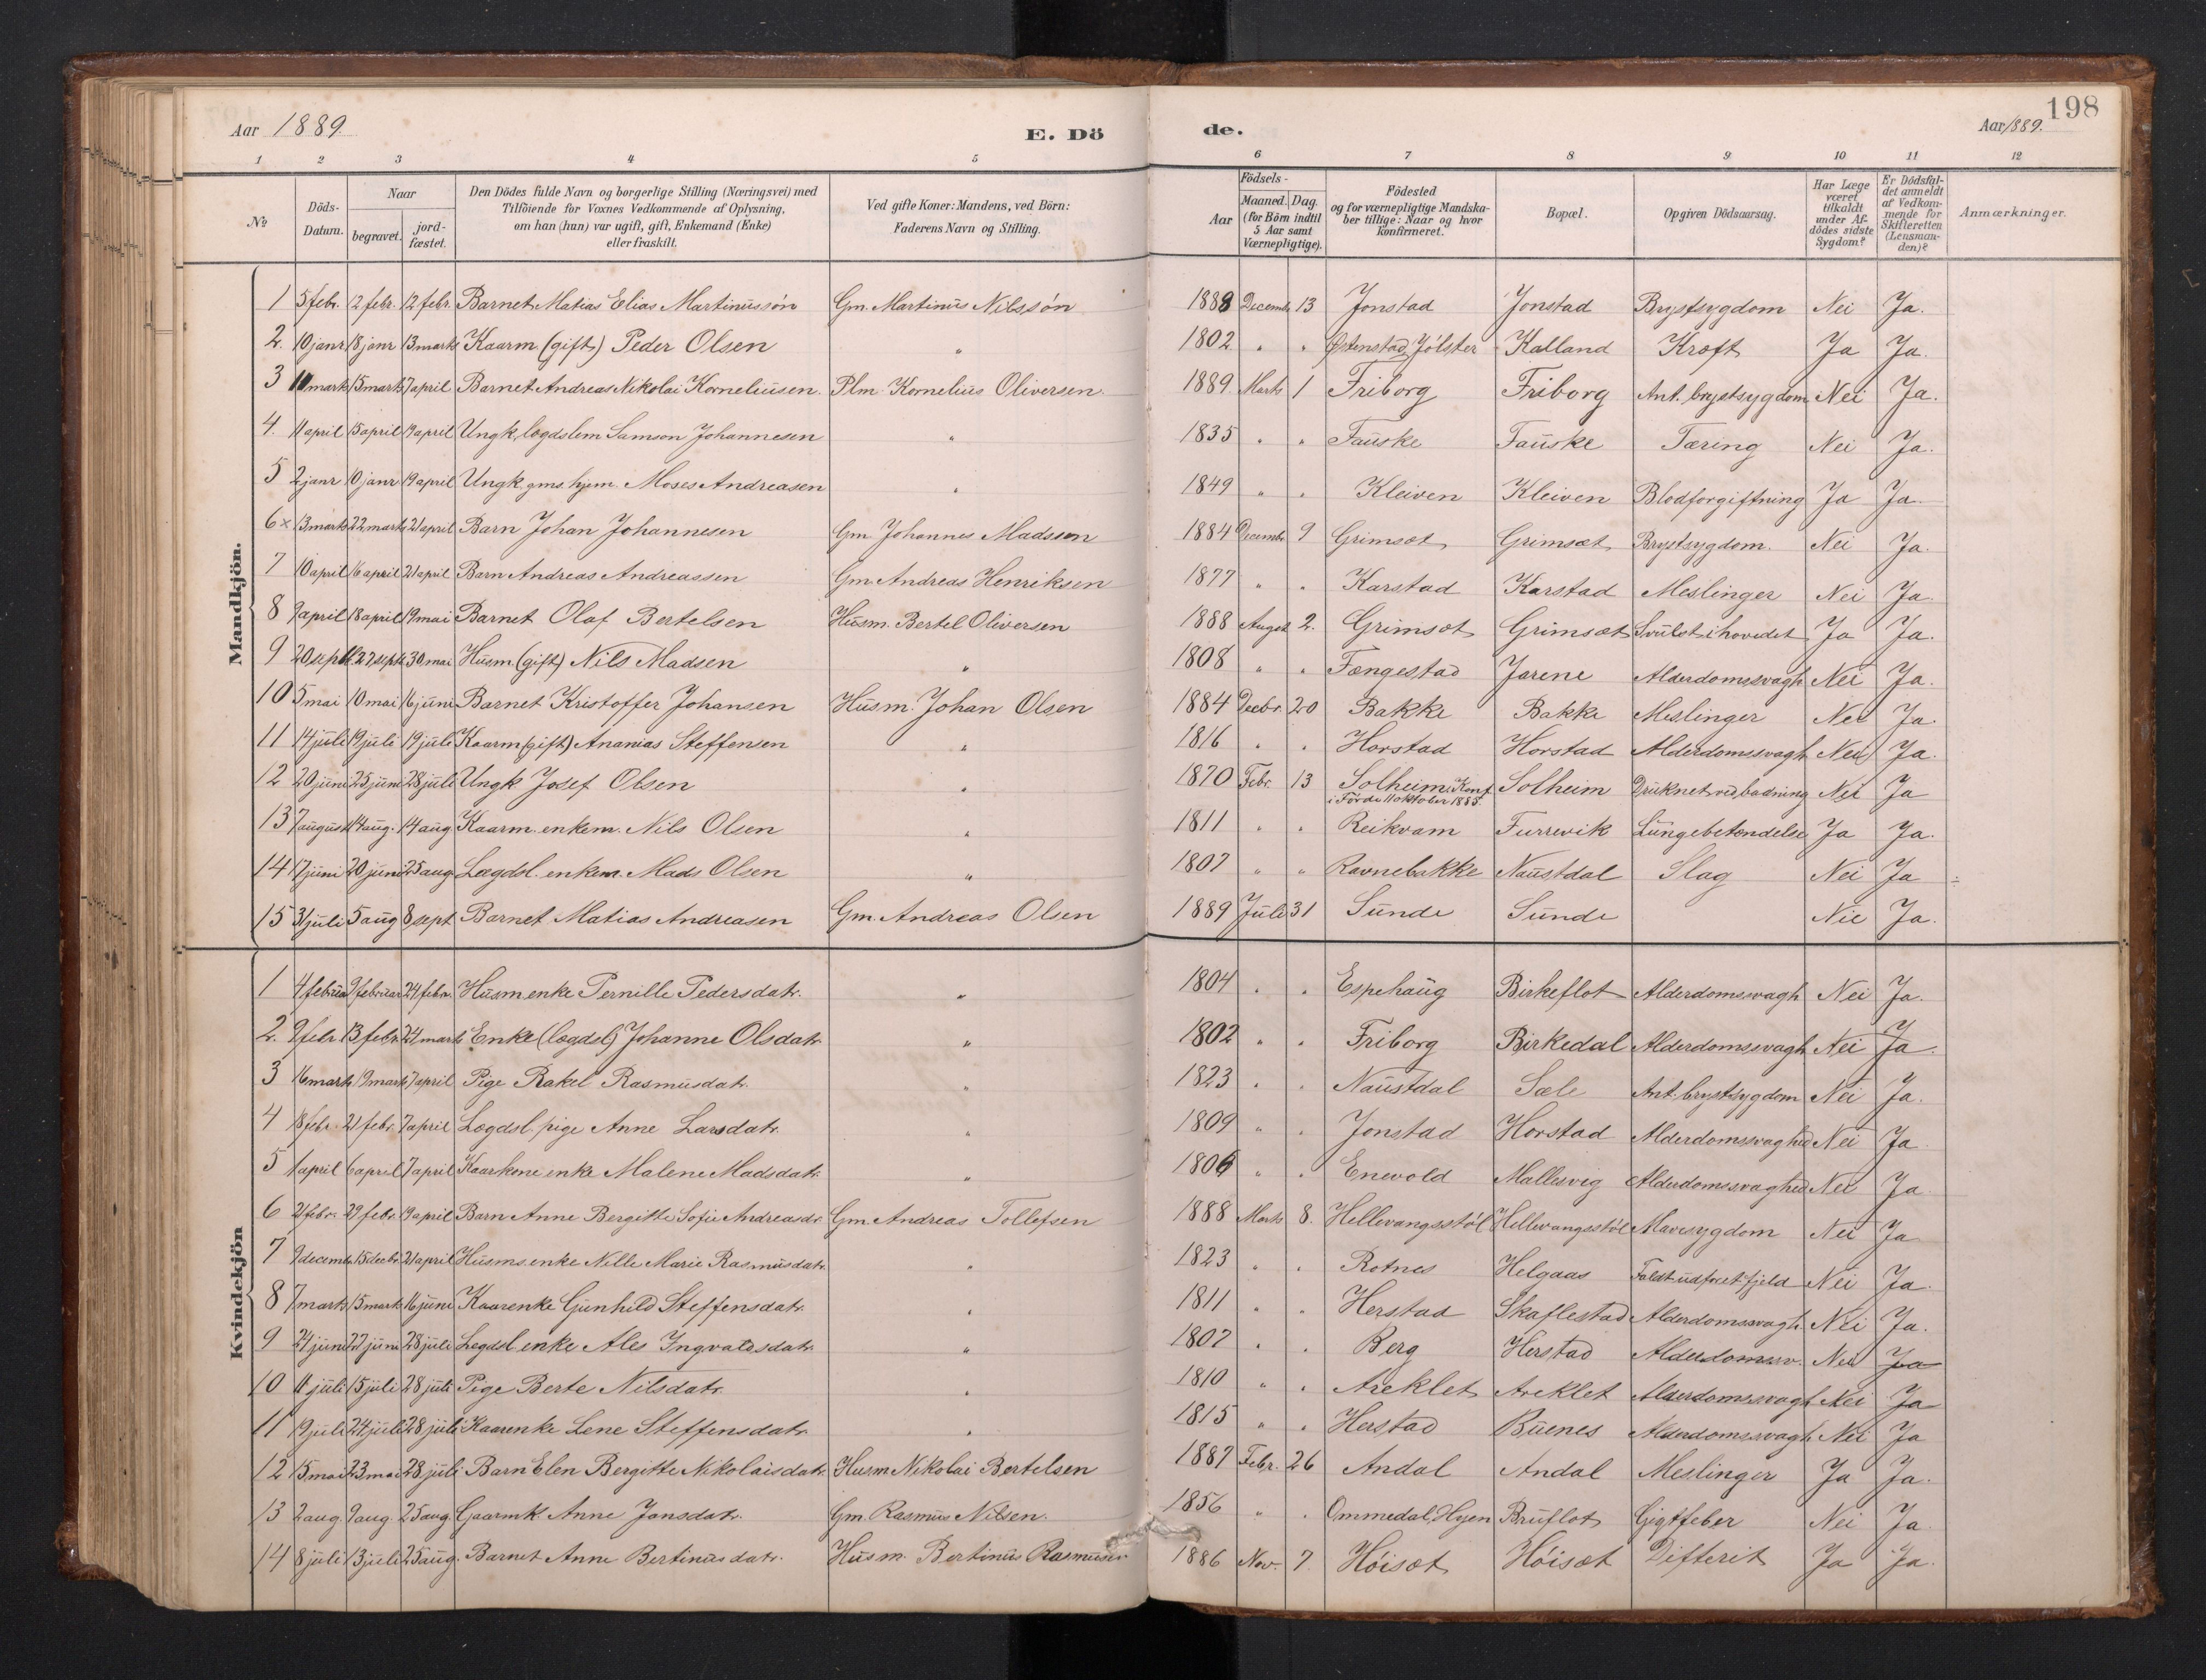 Aar 1889. E. Dö de. Aar 1889. 198
1 2 3 4 5 6 7 8 9 10 11 12
No
Döds-Datum.
Naar begravet. jordfæstet.
Den Dödes fulde Navn og borgerlige Stilling (Næringsvei) med
Tilföiende for Voxnes Vedkommende af Oplysning,
om han (hun) var ugift, gift, Enkemand (Enke)
eller fraskilt.
Ved gifte Koner: Mandens, ved Börn:
Faderens Navn og Stilling.
Födsels-
Aar Maaned. Dag.
(for Börn indtil
5 Aar samt
Værnepligtige).
Födested
og for værnepligtige Mandska-
ber tillige: Naar og hvor
konfirmeret.
Bopæl.
Opgiven Dödsaarsag.
Har Læge
været
tilkaldt
under Af-
dödes sidste
Sygdom?
Er Dödsfal-
det anmeldt
af Vedkom-
mende for
Skifteretten
(Lensman-
den)?
Anmærkninger.
Mandkjön.
1 5 febr. 12 febr. 12 febr. Barnet Matias Elias Martinussön Gm. Martinus Nilssön 1888 Decemb 13 Jonstad Jonstad Brystsygdom Nei Ja.
2. 10 janr 18 janr 13 marts Kaarm (gift) Peder Olsen " 1802 " " Østenstad, Jölster Kalland Kræft Ja Ja.
3 11 marts 15 marts 7 april Barnet Andreas Nikolai Korneliusen. Plm. Kornelius Oliversen. 1889. Marts 1 Friborg Friborg Ant. brystsygdom Nei Ja.
4. 11 april 15 april 19 april Ungk, lægdslem Samson Johannesen " 1835 " " Fauske Fauske Tæring Nei Ja.
5 2 janr 10 janr 19 april Ungk. gms. hjem. Moses Andreasen " 1849 " " Kleiven Kleiven Blodforgiftning Ja Ja.
6 x 13 marts 22 marts 21 april Barn Johan Johannesen Gm. Johannes Madssen 1884 Decembr 9 Grimsæt Grimsæt Brystsygdom. Nei Ja.
7 10 april 16 april 21 april Barn Andreas Andreassen Gm. Andreas Henriksen 1877 " " Karstad Karstad Meslinger Nei Ja.
8 9 april 18 april 19 mai Barnet Olaf Bertelsen Husm. Bertel Oliversen 1888 August 2. Grimsæt Grimsæt Svulst i hovedet Ja Ja.
9 20 septb. 27 septb 30 mai Husm. (gift) Nils Madsen " 1808 " " Fængestad Jarene Alderdomssvagh. Nei Ja.
10 5 mai 10 mai 16 juni Barnet Kristoffer Johansen Husm. Johan Olsen 1884 Decbr. 20 Bakke Bakke Meslinger Nei Ja.
11 14 juli 19 juli 19 juli Kaarm (gift) Ananias Steffensen " 1816 " " Horstad Horstad Alderdomssvagh. Nei Ja.
12 20 juni 25 juni 28 juli Ungk Josef Olsen " 1870 Febr. 13 Solheim. Konf. i Førde 11 oktober 1885. Solheim Druknet ved badning Nei Ja
13 7 august 14 aug. 14 aug. Kaarm. enkem. Nils Olsen " 1811 " " Reikvam Furrevik Lungebetændelse Ja Ja.
14 17 juni 20 juni 25 aug. Lægdsl. enkem. Mads Olsen " 1807 " " Ravnebakke Naustdal Slag Nei Ja
15 31 juli 5 aug 8 sept Barnet Matias Andreasen Gm. Andreas Olsen 1889 Juli 31 Sunde Sunde Nei Ja.
Kvindekjön
1 4 februar 9 februar 24 febr. Husm enke Pernille Pedersdatr. " 1804 " " Espehaug Birkeflot Alderdomssvagh. Nei Ja.
2. 9 febr. 13 febr. 24 marts Enke (lægdsl) Johanne Olsdatr. " 1802 " " Friborg Birkedal Alderdomssvagh. Nei Ja.
3 16 marts 19 marts 7 april Pige Rakel Rasmusdatr. " 1823 " " Naustdal Sæle Ant. brystsygdom Nei Ja.
4 18 febr. 21 febr. 7 april Lægdsl. pige Anne Larsdatr. " 1809 " " Jonstad Horstad Alderdomssvaghed Nei Ja
5 1 april 6 april 7 april Kaarkone enke Malene Madsdatr. " 1806 " " Enevold Mallesvig Alderdomssvaghed Nei Ja
6 21 febr. 29 febr. 19 april Barn Anne Bergitte Sofie Andreasdr. Gm. Andreas Tollefsen 1888 Marts 8. Hellevangsstöl Hellevangsstöl Mavesygdom Nei Ja
7 9 decemb. 15 decbr. 21 april Husms. enke Nille Marie Rasmusdatr. " 1823 " " Rotnes Helgaas Faldt ud for et fjeld Nei Ja.
8 7 marts 15 marts 16 juni Kaarenke Gunhild Steffensdatr. " 1811 " " Herstad Skaflestad Alderdomssvagh. Nei Ja.
9 24 juni 27 juni 28 juli Lægdsl enke Ales Ingvaldsdatr. " 1807 " " Berg Herstad Alderdomssv. Nei Ja
10 11 juli 15 juli 28 juli Pige Berte Nilsdatr. " 1810 " " Areklet Areklet Alderdomssvagh Nei Ja
11 19 juli 24 juli 28 juli Kaarenke Lene Steffensdatr. " 1815 " " Herstad Buenes Alderdomssvagh. Nei Ja
12 15 mai 23 mai 28 juli Barn Elen Bergitte Nikolaisdatr. Husm Nikolai Bertelsen 1887 Febr. 26 Andal Andal Meslinger Ja Ja.
13 2 aug. 9 aug. 25 aug. Gaarmk. Anne Jansdatr. Gm. Rasmus Nilsen. 1856 " " Ommedal, Hyen Bruflot Gigtfeber Nei Ja.
14 8 juli 13 juli 25 aug. Barnet Anne Bertinusdatr. Husm. Bertinus Rasmusen 1886 Nov. 7. Höisæt Höisæt Difterit Ja Ja.